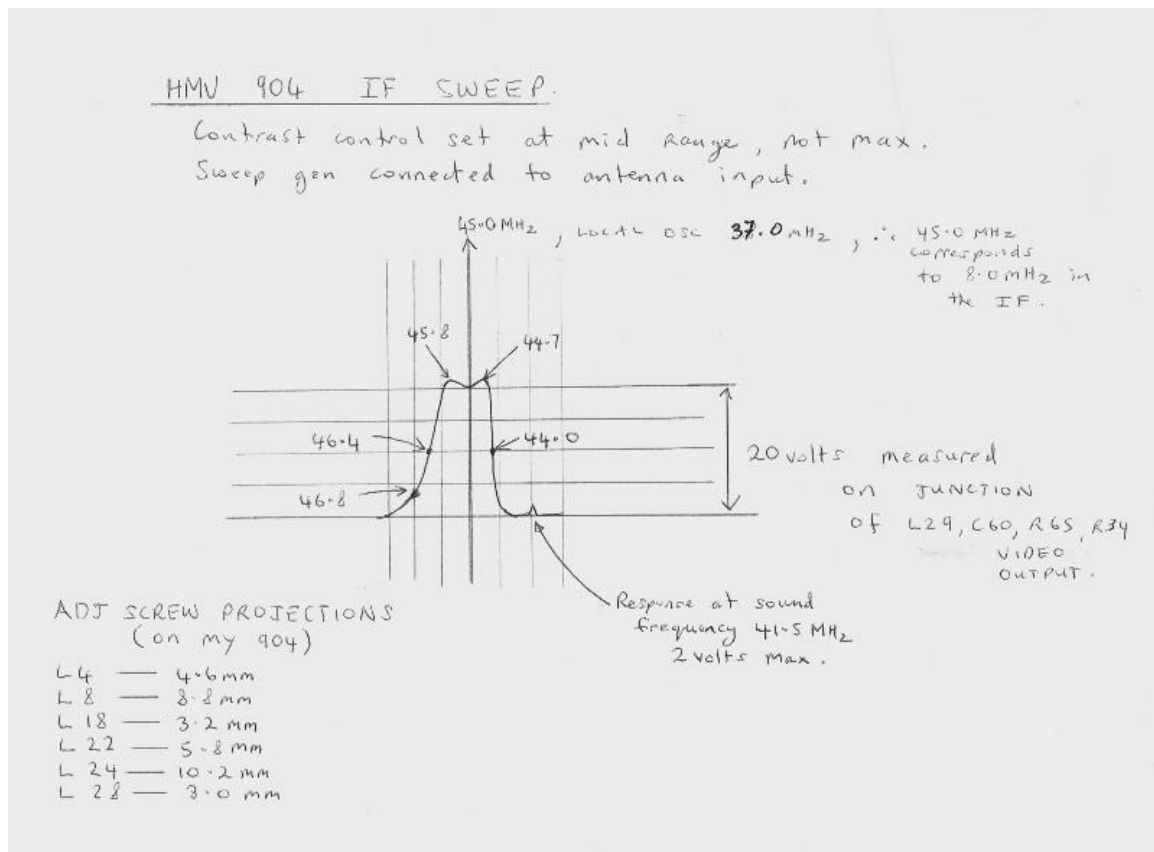 HMV 904 IF SWEEP.
Contrast control set at mid range, not max.
Sweep gen connected to antenna input.
45.0 MHz, LOCAL OSC 37.0 MHz, ∴ 45.0 MHz
corresponds
to 8.0 MHz in
the IF.
45.8
44.7
46.4
44.0
46.8
20 volts measured
on JUNCTION
of L29, C60, R65, R34
VIDEO
OUTPUT.
Response at sound
frequency 41.5 MHz
2 volts max.
ADJ SCREW PROJECTIONS
(on my 904)
L4 — 4.6mm
L 8 — 8.8 mm
L 18 — 3.2 mm
L 22 — 5.8 mm
L 24 — 10.2 mm
L 28 — 3.0 mm